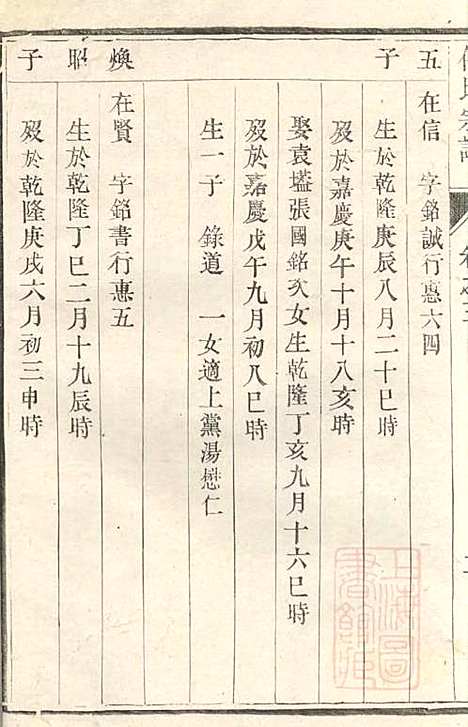 五
子
煥
昭
子
在信 字銘誠行惠六四
生於乾隆庚辰八月二十巳時
歿於嘉慶庚午十月十八亥時
娶袁塧張國銘次女生乾隆丁亥九月十六巳時
歿於嘉慶戊午九月初八巳時
生一子 錄道 一女適上黨湯懋仁
在賢 字銘書行惠五
生於乾隆丁巳二月十九辰時
歿於乾隆庚戌六月初三申時
上海圖
書館藏